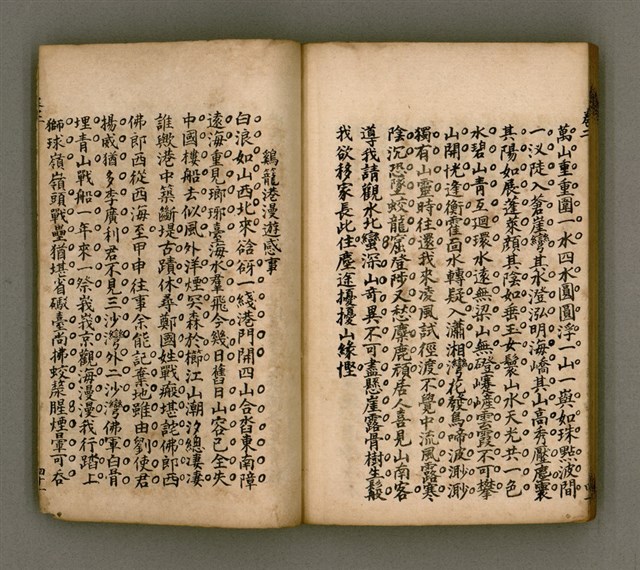 萬山重重圍一水四水圓圓浮一山一與如珠點波間
一汊陡入蒼崖彎其水澄泓明海嶠其山高秀壓塵寰
其陽如展蓬萊顏其陰如垂玉女鬟山水天光共一色
水碧山青互迴環水遠無梁山無磴嶂產雲霞不可攀
山開恍逢衡霍面水轉疑入瀟湘灣花發鳥啼波渺渺
獨有山靈時往還我來凌風試徑渡不覺中流風露寒
陰沉恐墜蛟龍窟登陟又愁麋鹿頑居人喜見山南客
導我請觀水北蠻深山奇異不可盡懸崖露骨樹生鬚
我欲移家長此住塵途擾擾山緣慳
鷄籠港漫遊感事
白浪如山西北來谽谺一綫港門開四山合沓東南障
遠海重見瑯琊臺海水羣飛今幾日舊日山容已全失
中國樓船去似風外洋煙突森於櫛江山潮汐總淒淒
誰歟港中築斷堤古蹟休尋鄭國姓戰瘢堪詫佛郎西
佛郎西從西海至甲申往事余能記棄地雖由劉使君
揚威猶多李廣利君不見三沙灣外二沙灣佛軍白骨
埋青山戰船一年來一祭峩峩京觀海漫漫我行踏上
獅球嶺嶺頭戰壘猶堪省礮臺尚拂蛟蜃腥煙暈可吞